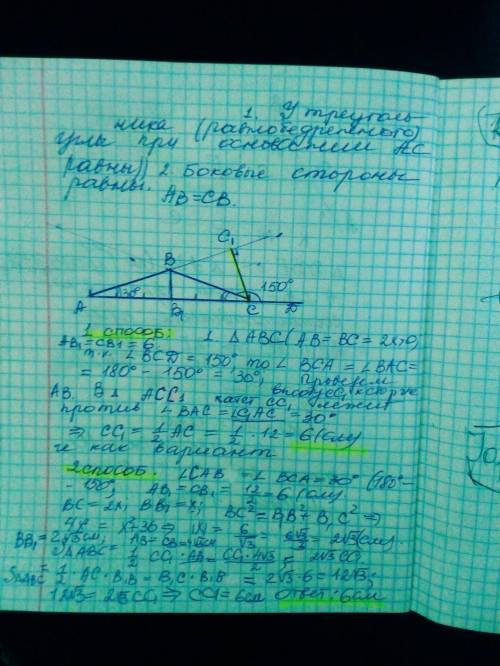 1. У треуголь-
ника (равнобедренного)
углы при основании AC
равны)) 2. Боковые стороны
равны.
AB = CB.
C₁
B
150°
A
B₁
C
D
1 способ:
1. Δ ABC (AB = BC = 2x>0,
AB₁ = CB₁ = 6
т.к. ∠ BCD = 150°, то ∠ BCA = ∠ BAC =
= 180° - 150° = 30°, Проведем
высоту CC₁ к стороне
AB. В Δ ACC₁ катет CC₁ лежит
против ∠ BAC = ∠C₁AC = 30°
⇒ CC₁ = 1/2 AC = 1/2 · 12 = 6 (см)
как вариант
2 способ. ∠CAB = ∠ BCA = 30° (180° -
- 150°, AB₁ = CB₁ = 12/2 = 6 (см)
BC = 2x, BB₁ = x, BC² = B₁B² + B₁C² ⇒
4x² = x² + 36 ⇒ x = 6/√3 = 6√3/3 = 2√3 (см).
BB₁ = 2√3 см, AB = CB = 4√3 см
SΔABC = 1/2 CC₁ · AB = CC₁ · 4√3/2 = 2√3 CC₁
SΔABC = 1/2 · AC · B₁B = B₁C · B₁B = 2√3 · 6 = 12√3;
12√3 = 2√3 CC₁ ⇒ CC₁ = 6см Ответ: 6см